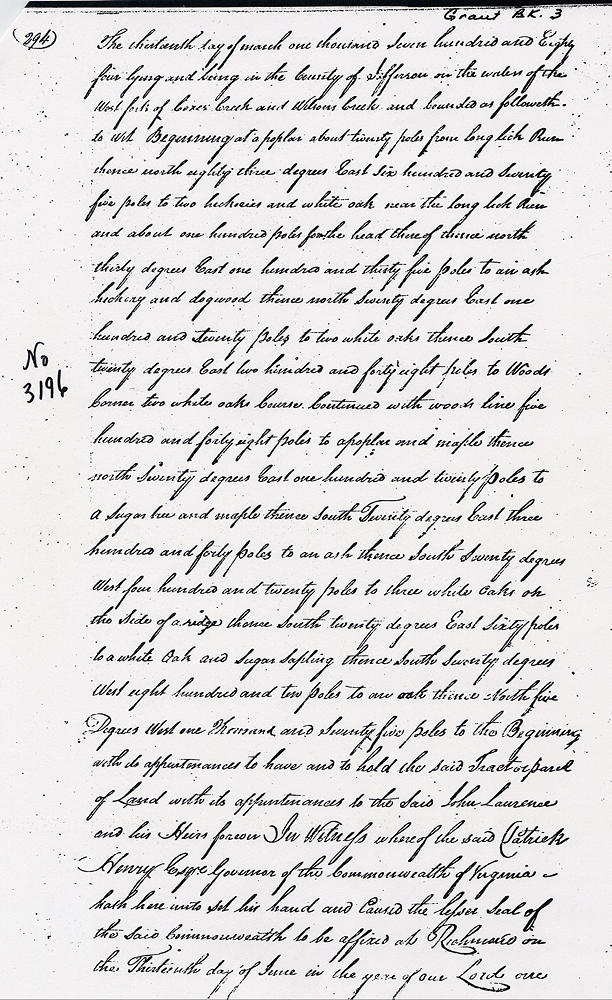 Grant BK. 3
(294)
The thirteenth day of march one thousand Seven hundred and Eighty
four lying and being in the County of Jefferson on the waters of the
West fork of Coxes Creek and Wilsons Creek and bounded as followeth.
to Wit Beginning at a poplar about twenty poles from long lick Run
thence north eighty three degrees East Six hundred and Seventy
five poles to two hickories and white oak near the long lick Run
and about one hundred poles from the head thereof thence north
thirty degrees East one hundred and thirty five poles to an ash
hickory and dogwood thence north Seventy degrees East one
hundred and Seventy poles to two white oaks thence South
twenty degrees East two hundred and forty eight poles to Woods
Corner two white oaks Course Continued with woods line five
hundred and forty eight poles to a poplar and maple thence
north Seventy degrees East one hundred and twenty poles to
a Sugar tree and maple thence South Twenty degrees East three
hundred and forty poles to an ash thence South Seventy degrees
West four hundred and twenty poles to three white Oaks on
the Side of a ridge thence South twenty degrees East Sixty poles
to a white Oak and Sugar Sapling thence South Seventy degrees
West eight hundred and ten poles to an oak thence North five
Degrees West one Thousand and Seventy five poles to the Beginning
with its appurtenances to have and to hold the said Tract or parcel
of Land with its appurtenances to the Said John Laurence
and his Heirs forever In Witness whereof the said Patrick
Henry Esqre Governor of the Commonwealth of Virginia
hath here unto Set his hand and Caused the lesser Seal of
the Said Commonwealth to be affixed at Richmond on
the Thirteenth day of June in the year of our Lord one
No
3196